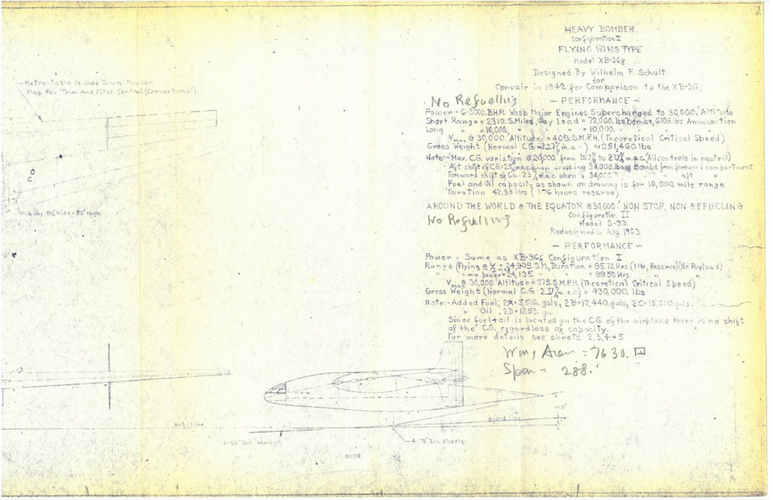 HEAVY BOMBER
Configuration I
FLYING WING TYPE
Model XB-36g
Designed By Wilhelm F. Schult
for
Convair in 1942 for Comparison to the XB-36.
No Refuelling
— PERFORMANCE —
Power = 6-3000 B.H.P. Wasp Major Engines Supercharged to 30,000' Altitude
Short Range = 2310 S.Miles, Pay Load = 72,000 lbs bombs, 6108 lbs Ammunition
Long " = 10,000 " " " = 10,000 " "
Vmax @ 30,000 Altitude = 405 M.P.H. (Theoretical Critical Speed)
Gross Weight (Normal C.G. m.a.c.) = 251,460 lbs
Note:- Max. C.G. variation @ 20,000 from 15.7% to 21% m.a.c. (All controls in neutral)
Aft shift of C.G. m.a.c. when dropping 38,000 lbs Bombs from forward compartment
Forward shift of C.G. m.a.c. when " 34,000 " " " aft "
Fuel and Oil capacity as shown on drawing is for 10,000 mile range
Duration 42.33 Hrs (1.76 hours reserve)
AROUND THE WORLD @ THE EQUATOR @ 30,000' NON STOP, NON REFUELING
No Refuelling
Configuration II
Model S-33
Redesigned in Aug 1963
— PERFORMANCE —
Power - Same as XB-36g Configuration I
Range (Flying @ S.M., Duration = 95.72 Hrs. (1 Hr. Reserve) (No Payload)
" " min. power = 24,135 " " = 99.50 Hrs
Vmax @ 30,000 Altitude = 375 S.M.P.H. (Theoretical Critical Speed)
Gross Weight (Normal C.G. m.a.c.) = 430,000 lbs
Note:- Added Fuel, 2A = gals, 2B = 12,440 gals, 2C = gals.
" Oil, 2D = gal
Since fuel & oil is located on the C.G. of the airplane there is no shift
of the C.G. regardless of capacity.
For more details see sheets 2, 3, 4 & 5
Wing Area = 7630.
Span - 288.'
Retractable Or Slide Down
Flap For Trim And Pitch Control (Conventional)
C
Ref. Line
SIDE